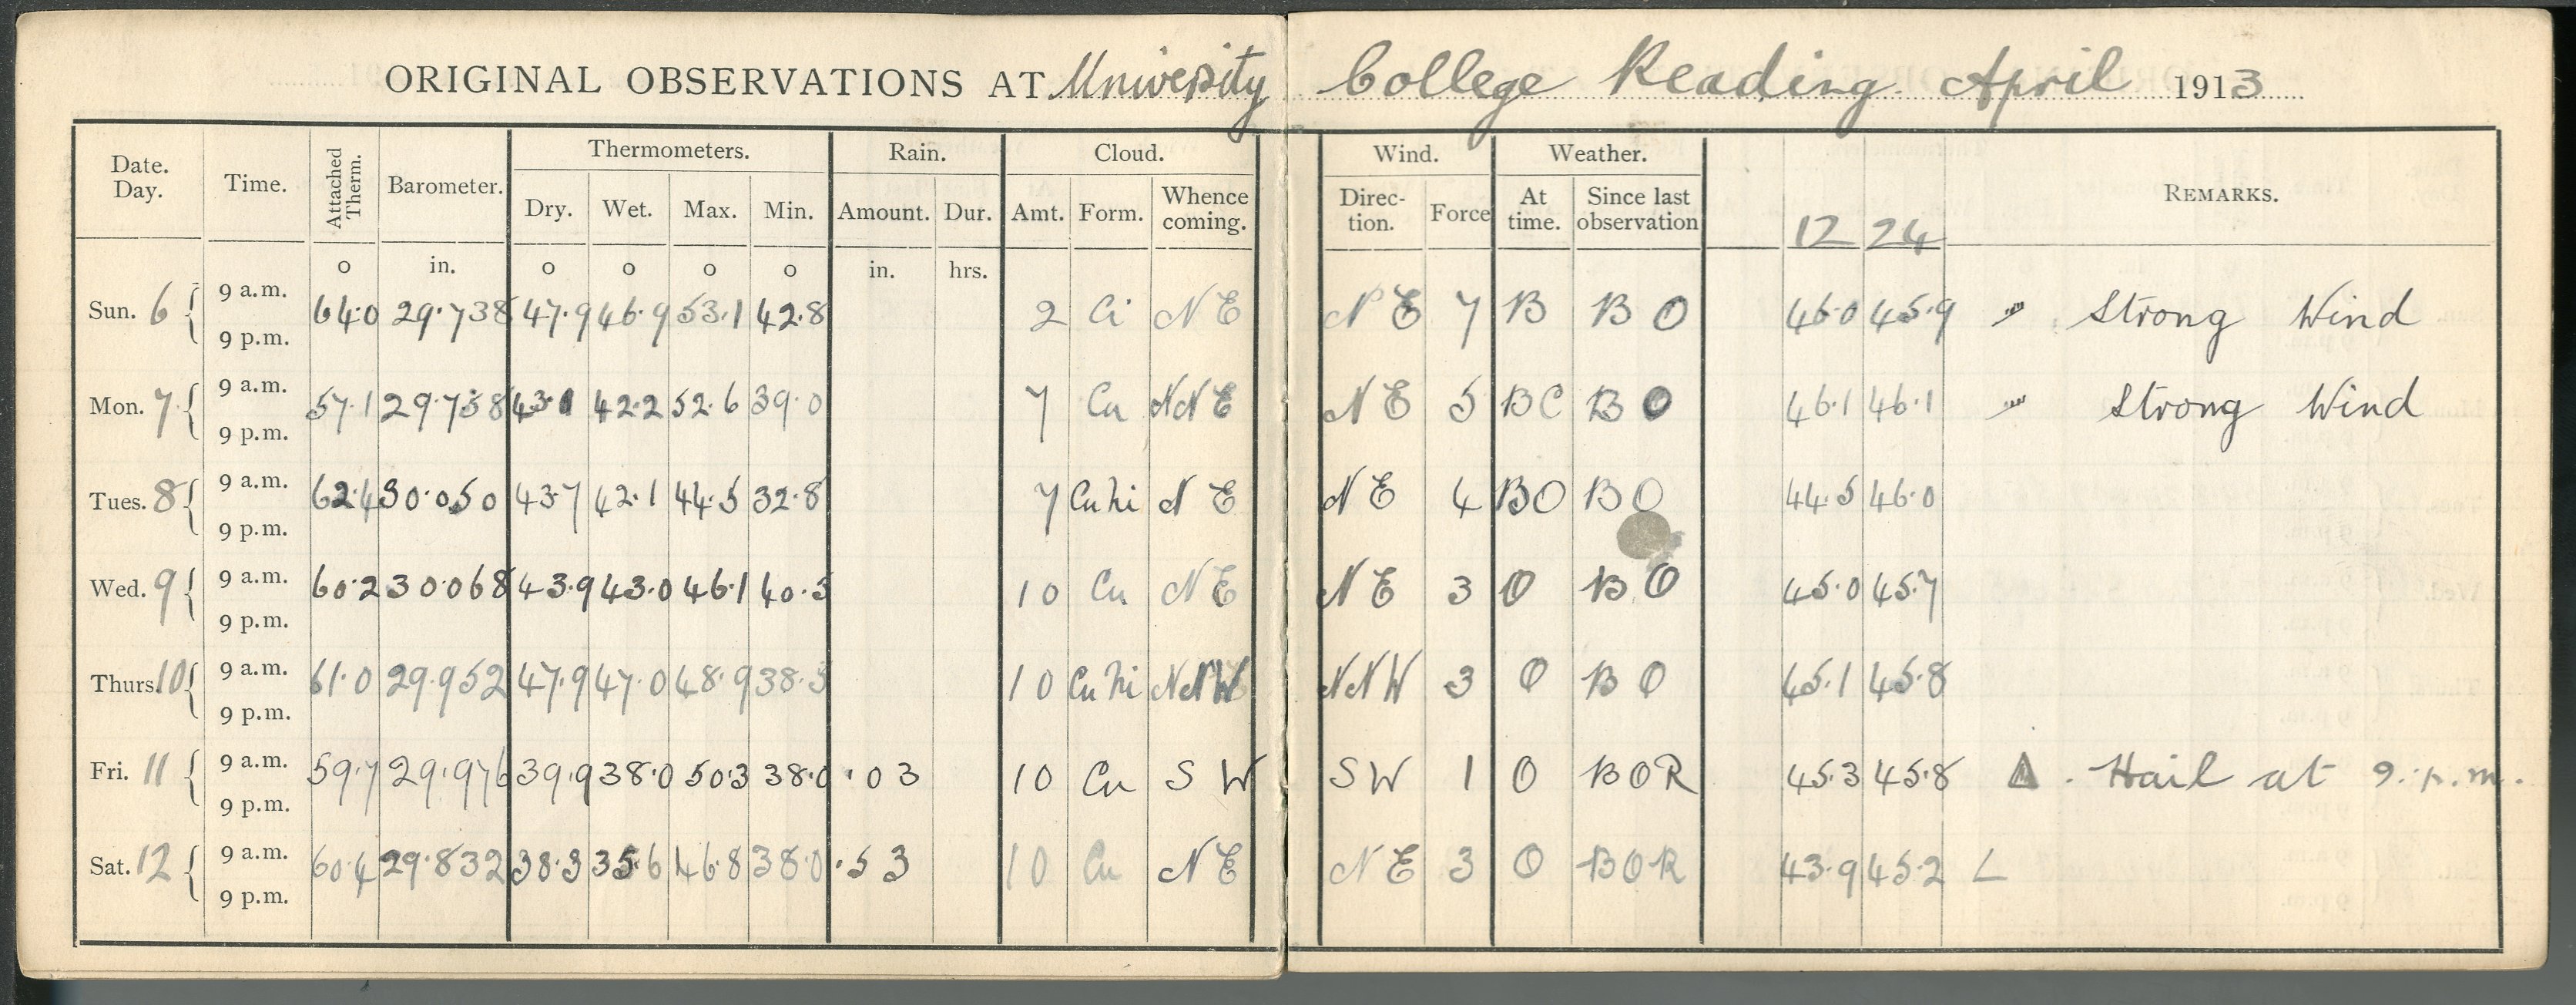 ORIGINAL OBSERVATIONS AT University College Reading April 1913
Date. Day. Time. Attached Therm. Barometer. Thermometers. Rain. Cloud. Wind. Weather. REMARKS.
Dry. Wet. Max. Min. Amount. Dur. Amt. Form. Whence coming. Direc- tion. Force At time. Since last observation 12 24
o in. o o o o in. hrs.
9 a.m.
Sun. 6 64.0 29.738 47.9 46.9 53.1 42.8 2 Ci N E N E 7 B B O 46.0 45.9 Strong Wind
9 p.m.
9 a.m.
Mon. 7 57.1 29.738 43.1 42.2 52.6 39.0 7 Cu NNE N E 5 BC B O 46.1 46.1 Strong Wind
9 p.m.
9 a.m.
Tues. 8 62.4 30.050 43.7 42.1 44.5 32.8 7 Cu Ni N E N E 4 BO BO 44.5 46.0
9 p.m.
9 a.m.
Wed. 9 60.2 30.068 43.9 43.0 46.1 40.5 10 Cu N E N E 3 O B O 45.0 45.7
9 p.m.
9 a.m.
Thurs. 10 61.0 29.952 47.9 47.0 48.9 38.5 10 Cu Ni NNW NNW 3 O B O 45.1 45.8
9 p.m.
9 a.m.
Fri. 11 59.7 29.976 39.9 38.0 50.3 38.0 .03 10 Cu S W SW 1 O BOR 45.3 45.8 ▲ . Hail at 9.p.m.
9 p.m.
9 a.m.
Sat. 12 60.4 29.832 38.3 35.6 46.8 38.0 .53 10 Cu N E N E 3 O BOR 43.9 45.2
9 p.m.